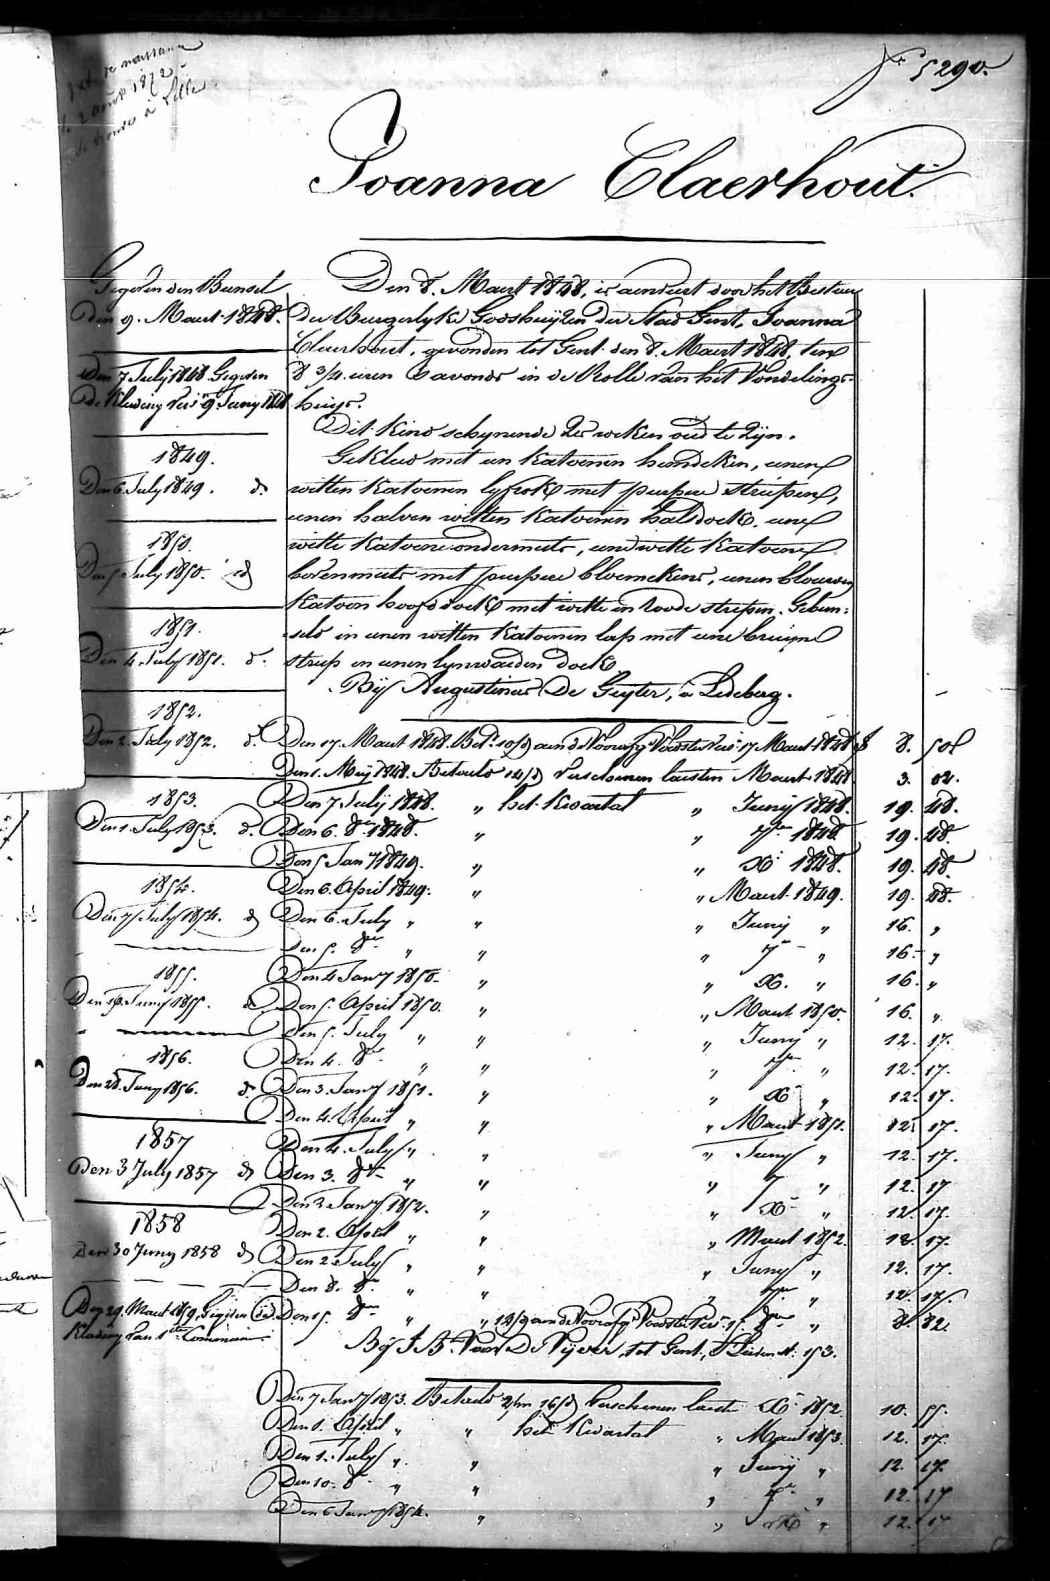 Ext. de naissance
le 2 août 1872
à Lille
N° 5290.
Joanna Claerhout.
Gegeven den Bunsel
den 9. Maart 1848.
Den 7 July 1848 Gegeven
de Kleding Vers 9 Juny 1848
1849.
Den 6 July 1849. d.
1850.
Den 5 July 1850. id
1851.
Den 4 July 1851. d.
1852.
Den 2 July 1852. d.
1853.
Den 1. July 1853. d.
1854.
Den 7 July 1854. d
1855.
Juny 1855. d.
1856.
Den 28. Juny 1856. d.
1857
Den 3 July 1857 d
1858
Den 30 Juny 1858 d
Den 29. Maart 1859 Gegeven
Kleding van 1ste Communie
Den 8. Maart 1848, is aenveert door het Bestuer
der Burgerlyke Godshuyzen der Stad Gent, Joanna
Claerhout, gevonden tot Gent den 8. Maert 1848, ten
8 3/4 uren s'avonds in de Rolle van het Vondelings-
huys.
Dit kind schynende zes weken oud te zyn.
Gekleed met een katoenen hemdeken, eenen
witten katoenen lyfrok met purpere striepen,
eenen halven witten katoenen halsdoek, eene
witte katoene ondermuts, eene witte katoene
bovenmuts met purpere bloemekens, eenen blauwen
katoen hoofddoek met witte en roode strepen. Gebun-
seld in eenen witten katoenen lap met eene bruyne
streep en eenen lynwaeden doek
Bij Augustinus De Geyter, à Ledeberg.
Den 17. Maart 1848. Bet. 10/ aen de Voorzorg Voorste Vers. 17 Maart 1848 f 8. 50
Den 1. Mey 1848. Betaeld 14/ Verschenen laesten Maert 1848 3. 02.
Den 7 July 1848. " het Kwartal " Juny 1848. 19. 48.
Den 6. 8ber 1848. " " 7ber 1848 19. 48.
Den 5 Jany 1849. " " Xr 1848. 19. 48.
Den 6. April 1849. " " Maart 1849. 19. 48.
Den 6. July " " " Juny " 16. "
Den 5. 8ber " " " 7ber " 16. "
Den 4 Jany 1850. " " X. " 16. "
Den 5. April 1850. " " Maart 1850. 16. "
Den 5. July " " " Juny " 12. 17.
Den 4. 8ber " " " 7ber " 12. 17.
Den 3. Jany 1851. " " X " 12. 17.
Den 4. April " " " Maart 1851. 12. 17.
Den 4. July " " " Juny " 12. 17.
Den 3. 8ber " " " 7 " 12. 17
Den 2 Jany 1852. " " X " 12. 17.
Den 2. April " " " Maart 1852. 12. 17.
Den 2 July " " " Juny " 12. 17.
Den 8. 8ber " " " 7ber " 12. 17.
Den 15. 8ber " " 14/ aen de Voorzorg Voorste Vers. 15. 8ber "
Bij J. B. Van De Vyver, tot Gent, N. 153.
Den 7 Jany 1853. Betaeld 2/m 16/ Verschenen laeste Xr 1852 10. 55.
Den 1. April " " het Kwartal " Maart 1853. 12. 17.
Den 1. July " " " Juny " 12. 17.
Den 10. 8ber " " " 7ber " 12. 17
Den 6 Jany 1854. " " X " 12. 17